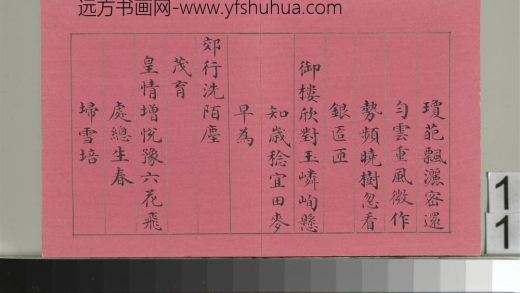 远方书画网-www.yfshuhua.com
瓊葩飄灑密還
勻雲重風微作
勢頻曉樹忽看
銀匝匝
御樓欣對玉嶙峋懸
知歲稔宜田麥
早為
郊行洗陌塵
茂育
皇情增悅豫六花飛
處總生春
埽雪培
11